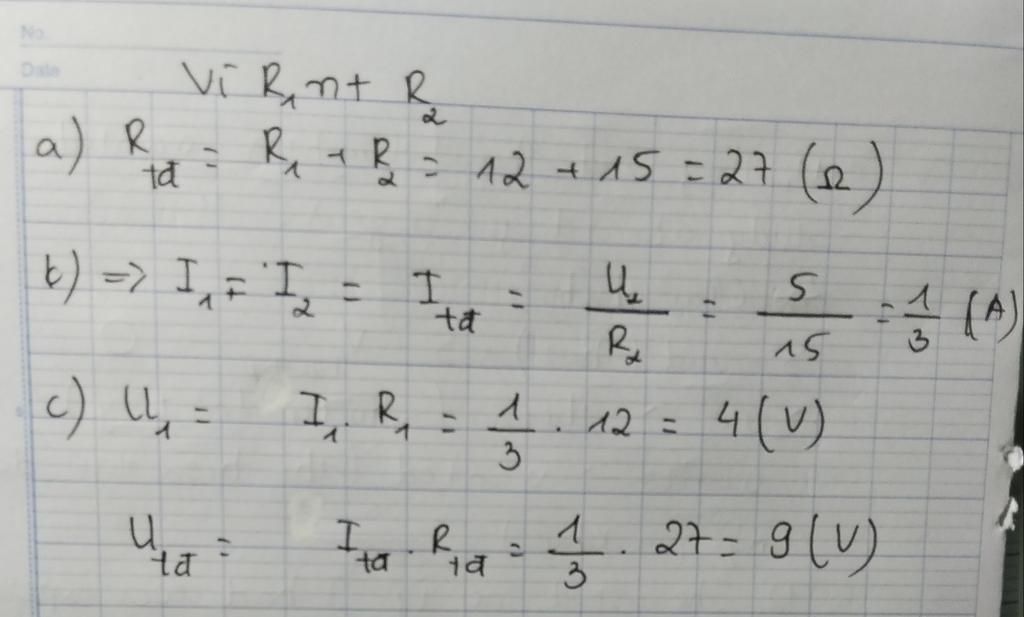 No.
Date
Vì R₁ nt R₂
a) R_tđ = R₁ + R₂ = 12 + 15 = 27 (Ω)
b) => I₁ = I₂ = I_tđ = U₂/R₂ = 5/15 = 1/3 (A)
c) U₁ = I₁ . R₁ = 1/3 . 12 = 4 (V)
U_tđ = I_tđ . R_tđ = 1/3 . 27 = 9 (V)